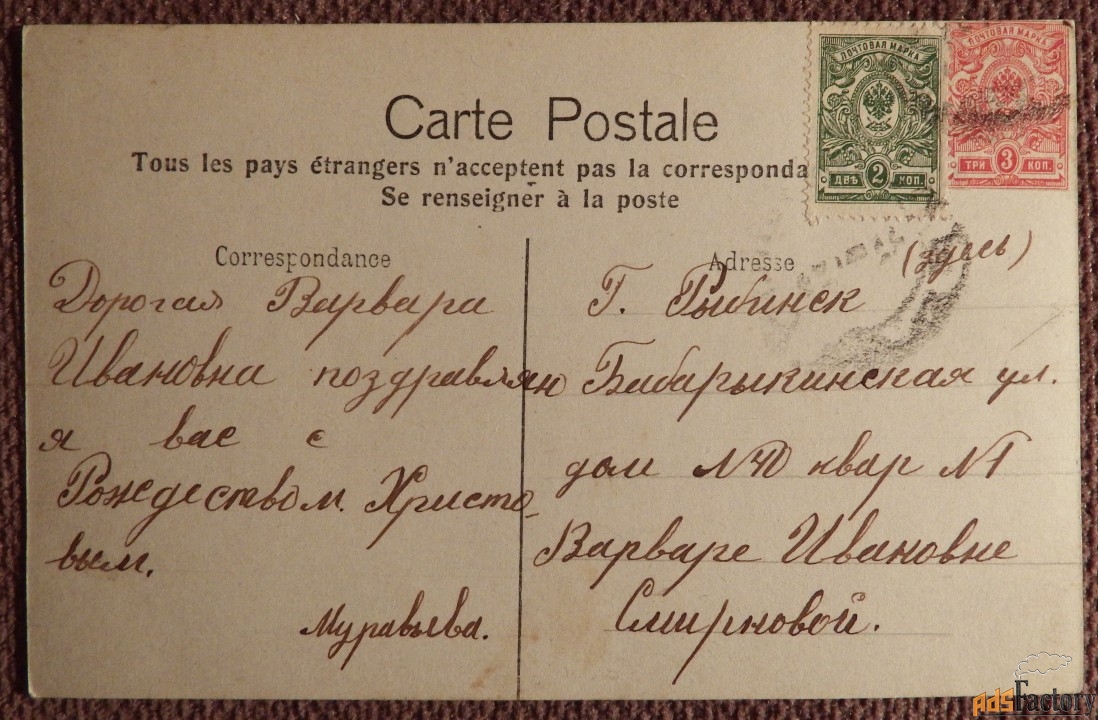 Carte Postale
Tous les pays étrangers n'acceptent pas la corresponda
Se renseigner à la poste
ПОЧТОВАЯ МАРКА
ДВѢ 2 КОП.
ПОЧТОВАЯ МАРКА
ТРИ 3 КОП.
Correspondance
Дорогая Варвара
Ивановна поздравляю
я вас с
Рождеством. Христо-
вым.
Муравьева.
Adresse
(здесь)
Г. Рыбинск
Бабарыкинская ул.
дом № квар №1
Варваре Ивановне
Смирновой.
AdsFactory